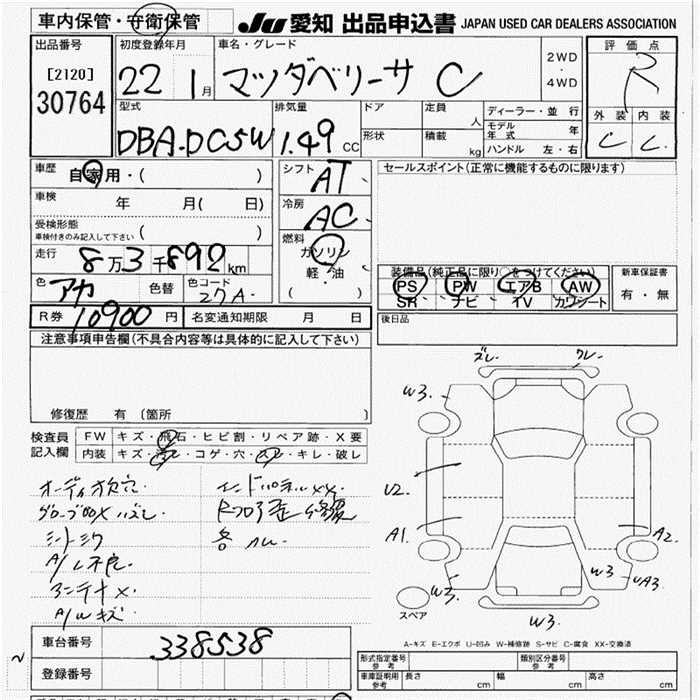 車内保管・守衛保管
JU 愛知 出品申込書 JAPAN USED CAR DEALERS ASSOCIATION
出品番号
[2120]
30764
初度登録年月
22 1月
車名・グレード
マツダベリーサ C
2WD
・
4WD
評価点
R
外装 内装
C C
型式
DBA-DC5W
排気量
1.49 CC
ドア
形状
定員
人
積載
kg
ディーラー・並行
モデル年式 年
ハンドル 左・右
車歴
自家用・( )
車検
年 月( 日)
受検形態
車検付きのみ記入して下さい ( )
走行
8万3千892km
色
アカ
色替
色コード
27A
シフト
AT
冷房
AC
燃料
ガソリン
軽・油
( )
セールスポイント(正常に機能するものに限ります)
装備品(純正品に限り○をつけてください)
PS PW エアB AW
SR ナビ TV カワシート
新車保証書
有・無
R券 10900円
名変通知期限 月 日
後日品
注意事項申告欄(不具合内容等は具体的に記入して下さい)
修復歴 有(箇所 )
検査員記入欄
FW キズ・飛石・ヒビ割・リペア跡・X要
内装 キズ・汚レ・コゲ・穴・スレ・キレ・破レ
オーディオ欠穴
シートシワ
A/L不良
アンテナX
A/Wキズ
ズレ クレ
W3
U2
A1
A2
W3
W3
UA3
W3
スペア
A-キズ E-エクボ U-凹み W-補修跡 S-サビ C-腐食 XX-交換済
車台番号
338538
登録番号
形式指定番号
参考
類別区分番号
参考
車庫証明用
参考
長さ cm 幅 cm 高さ cm